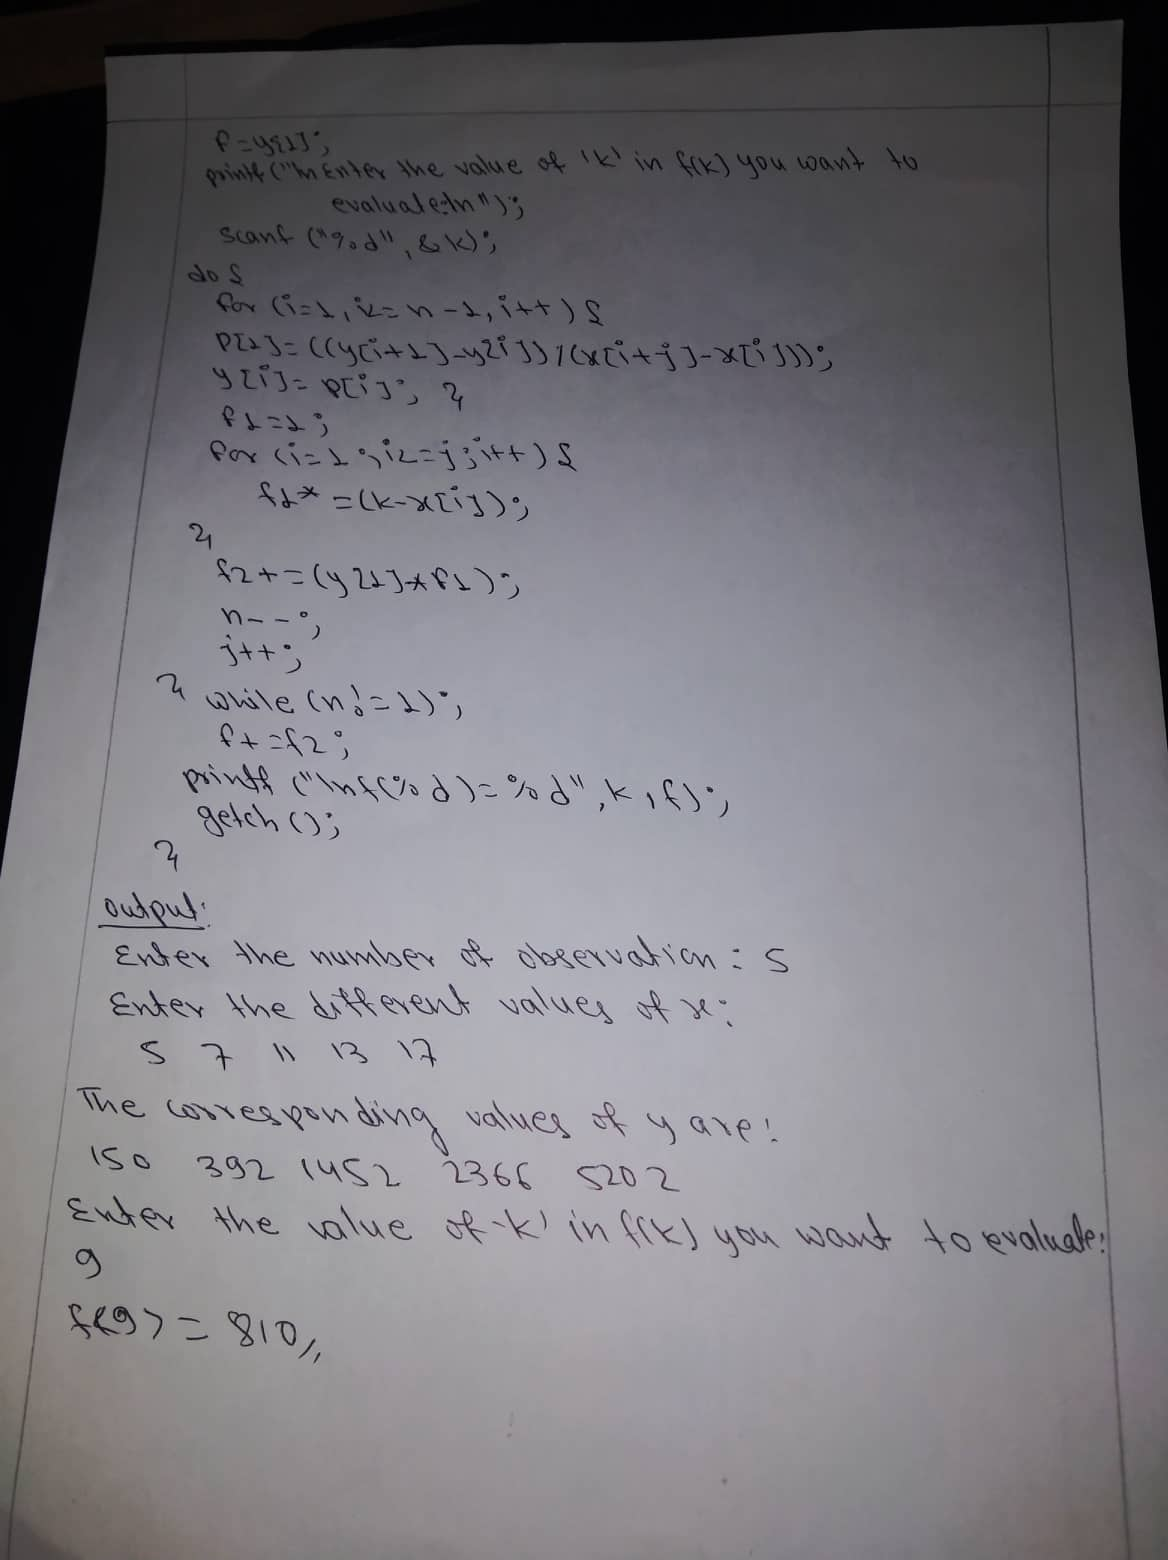 f=y[1];
printf("\nEnter the value of 'k' in f(k) you want to
evaluate:\n");
scanf ("%d", &k);
do {
for (i=1, i<=n-1, i++) {
P[1]=((y[i+1]-y[i])/(x[i+j]-x[i]));
y[i]= p[i]; }
f1=1;
for (i=1; i<=j; i++) {
f1* =(k-x[i]);
}
f2+=(y[1]*f1);
n--;
j++;
} while (n!=1);
f+=f2;
printf ("\nf(%d)=%d", k, f);
getch ();
}
output:
Enter the number of observation: 5
Enter the different values of x:
5 7 11 13 17
The corresponding values of y are:
150 392 1452 2366 5202
Enter the value of 'k' in f(k) you want to evaluate:
9
f(9) = 810//